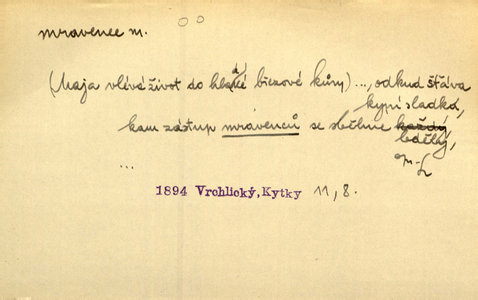 mravenec m.
(Maja vlévá život do hladké březové kůry) ..., odkud šťáva
kypí sladká,
kam zástup mravenců se sběhne každý
bdělý,
...
1894 Vrchlický, Kytky 11, 8.